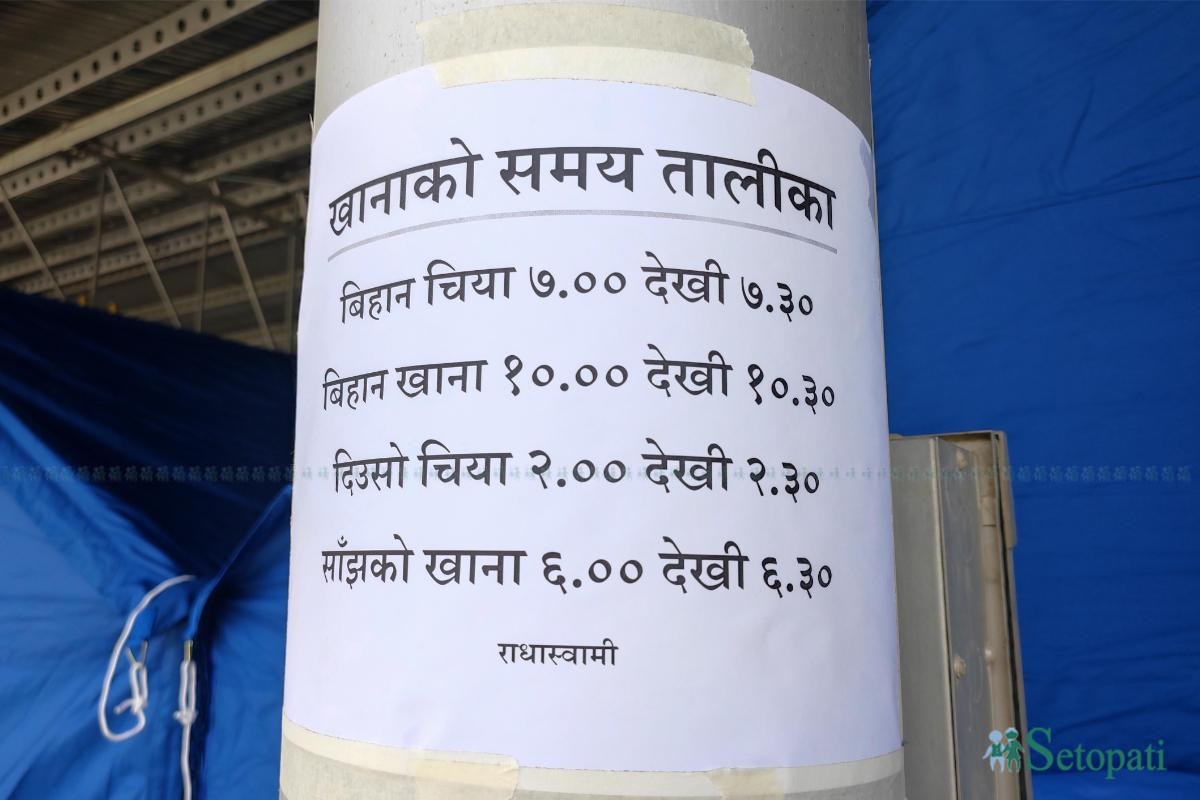 खानाको समय तालीका
बिहान चिया ७.०० देखी ७.३०
बिहान खाना १०.०० देखी १०.३०
दिउसो चिया २.०० देखी २.३०
साँझको खाना ६.०० देखी ६.३०
राधास्वामी
Setopati